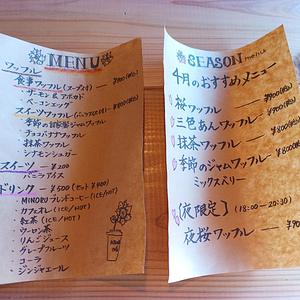 MENU
ワッフル
食事ワッフル(スープ付き) — ¥900(税込)
・サーモン&アボカド
・ベーコンエッグ
スイーツワッフル
・季節の自家製ジャムワッフル
・チョコバナナワッフル
・抹茶ワッフル
・シナモンシュガー
スイーツ — ¥200
・バニラアイス
ドリンク — ¥500(セット ¥400)
・MINORIブレンドコーヒー(ICE/HOT)
・カフェオレ(ICE/HOT)
・紅茶(ICE/HOT)
・ウーロン茶
・りんごジュース
・グレープフルーツ
・コーラ
・ジンジャエール
SEASON menu
4月のおすすめメニュー
桜ワッフル — ¥900(税込)
三色あんワッフル — ¥900(税込)
抹茶ワッフル — ¥800(税込)
季節のジャムワッフル — ¥800(税込)
ミックスベリー
(夜限定) (18:00~20:30)
夜桜ワッフル — ¥90